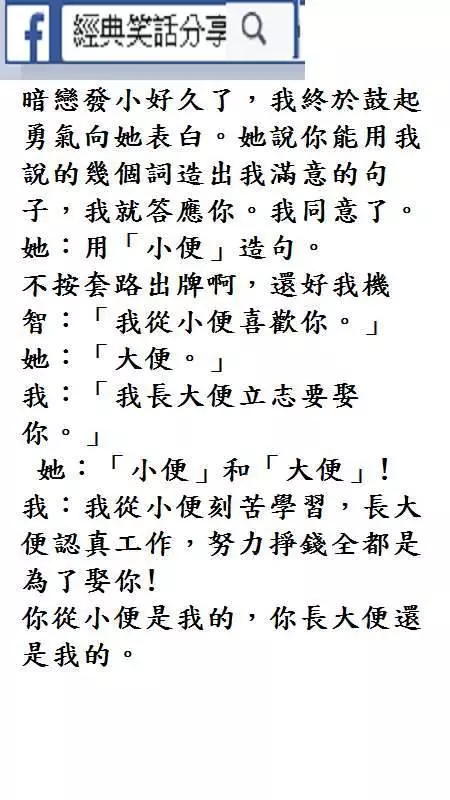 經典笑話分享
暗戀發小好久了，我終於鼓起
勇氣向她表白。她說你能用我
說的幾個詞造出我滿意的句
子，我就答應你。我同意了。
她：用「小便」造句。
不按套路出牌啊，還好我機
智：「我從小便喜歡你。」
她：「大便。」
我：「我長大便立志要娶
你。」
她：「小便」和「大便」!
我：我從小便刻苦學習，長大
便認真工作，努力掙錢全都是
為了娶你!
你從小便是我的，你長大便還
是我的。